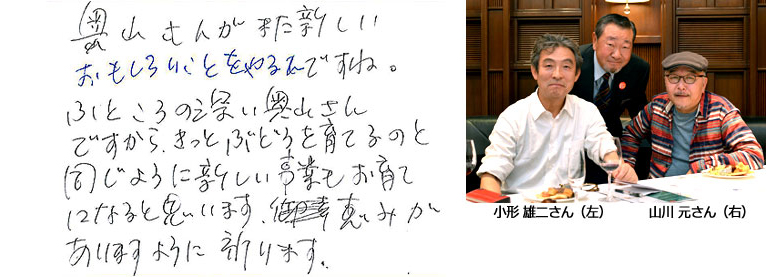 奥山さんがまた新しい
おもしろいことをやるんですね。
ふところの深い奥山さん
ですから、きっとぶどうを育てるのと
同じように新しい事業もお育て
になると思います。恵みが
ありますように祈ります。
小形 雄二さん（左）
山川 元さん（右）